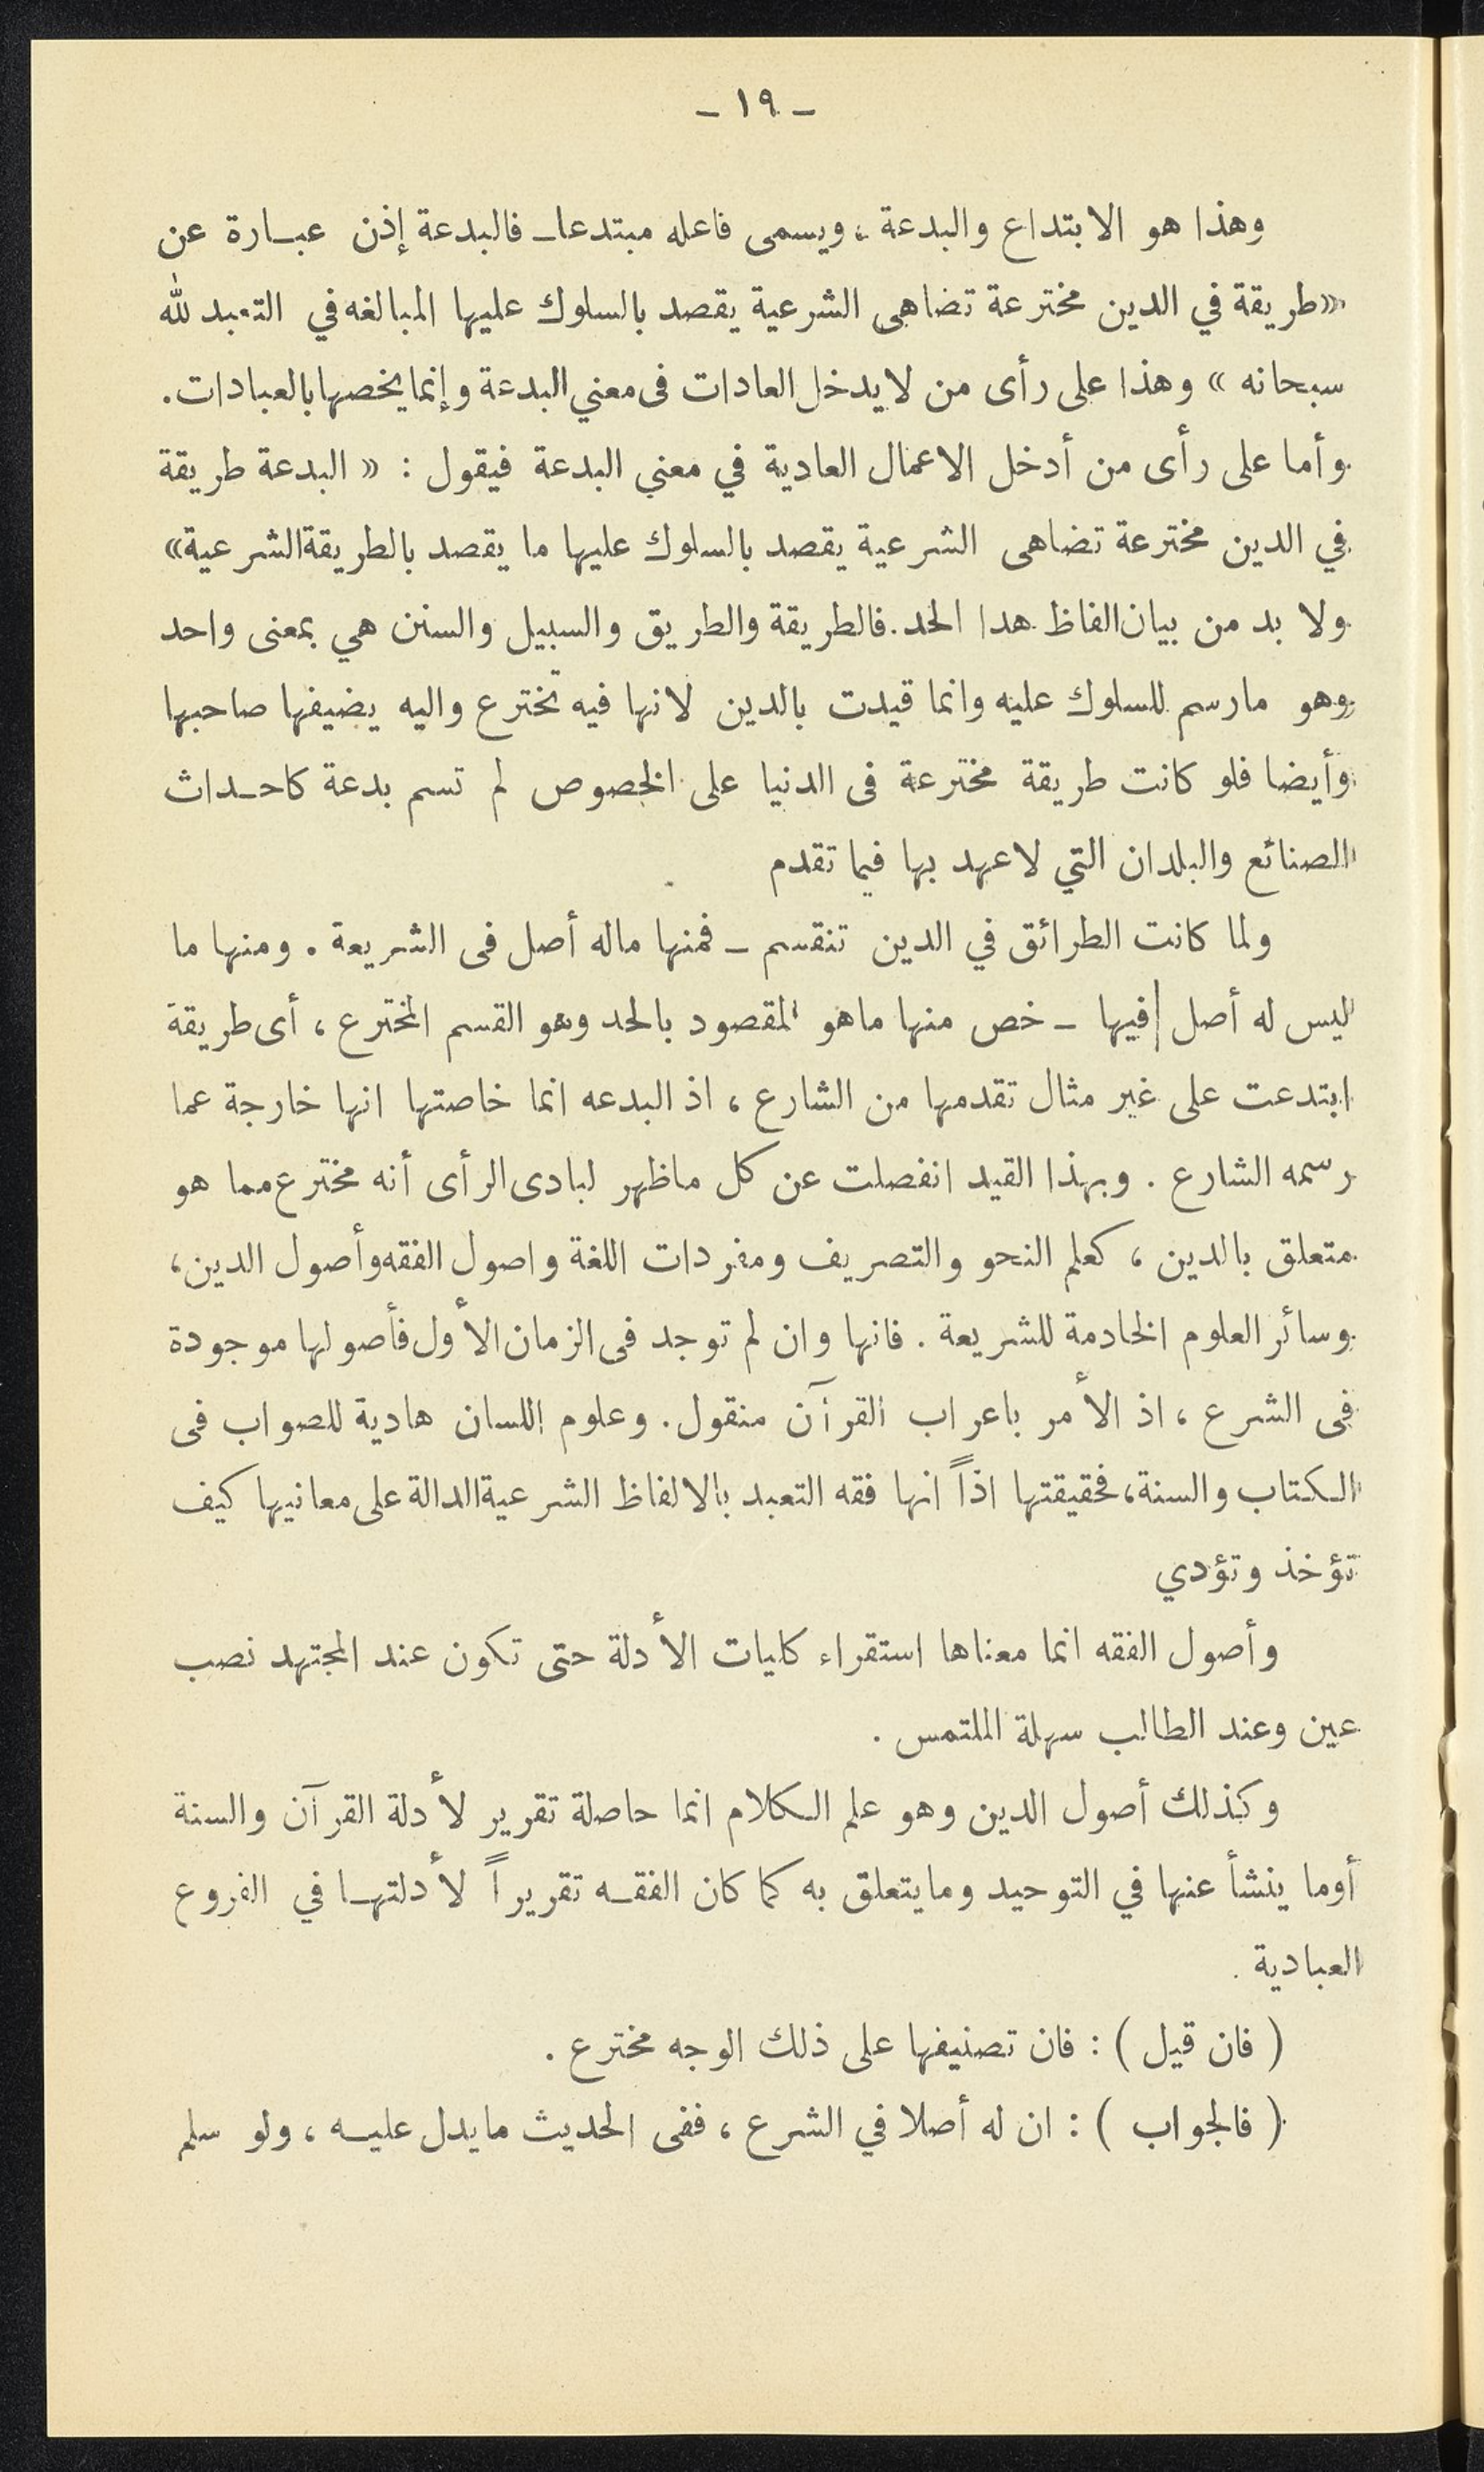 - ١٩ -
وهذا هو الابتداع والبدعة ، ويسمى فاعله مبتدعا ــ فالبدعة إذن عبــارة عن
«طريقة في الدين مخترعة تضاهي الشرعية يقصد بالسلوك عليها المبالغه في التعبد لله
سبحانه » وهذا على رأى من لايدخل العادات فى معني البدعة وإنمايخصها بالعبادات .
وأما على رأى من أدخل الاعمال العادية في معني البدعة فيقول : « البدعة طريقة
في الدين مخترعة تضاهى الشرعية يقصد بالسلوك عليها ما يقصد بالطريقة الشرعية»
ولا بد من بيان الفاظ هدا الحد . فالطريقة والطريق والسبيل والسنن هي بمعنى واحد
وهو مارسم للسلوك عليه وانما قيدت بالدين لانها فيه تخترع واليه يضيفها صاحبها
وأيضا فلو كانت طريقة مخترعة فى الدنيا على الخصوص لم تسم بدعة كاحــداث
الصنائع والبلدان التي لاعهد بها فيما تقدم
ولما كانت الطرائق في الدين تنقسم ــ فمنها ماله أصل فى الشريعة . ومنها ما
ليس له أصل فيها ــ خص منها ماهو المقصود بالحد وهو القسم المخترع ، أى طريقة
ابتدعت على غير مثال تقدمها من الشارع ، اذ البدعه انما خاصتها انها خارجة عما
رسمه الشارع . وبهذا القيد انفصلت عن كل ماظهر لبادى الرأى أنه مخترع مما هو
متعلق بالدين ، كعلم النحو والتصريف ومفردات اللغة واصول الفقه وأصول الدين ،
وسائر العلوم الخادمة للشريعة . فانها وان لم توجد فى الزمان الأول فأصولها موجودة
فى الشرع ، اذ الأمر باعراب القرآن منقول . وعلوم اللسان هادية للصواب فى
الكتاب والسنة ، فحقيقتها اذاً انها فقه التعبد بالالفاظ الشرعية الدالة على معانيها كيف
تؤخذ وتؤدي
وأصول الفقه انما معناها استقراء كليات الأدلة حتى تكون عند المجتهد نصب
عين وعند الطالب سهلة الملتمس .
وكذلك أصول الدين وهو علم الكلام انما حاصلة تقرير لأدلة القرآن والسنة
أوما ينشأ عنها في التوحيد ومايتعلق به كما كان الفقــه تقريراً لأدلتهــا في الفروع
العبادية .
( فان قيل ) : فان تصنيفها على ذلك الوجه مخترع .
( فالجواب ) : ان له أصلا في الشرع ، ففى الحديث مايدل عليــه ، ولو سلم